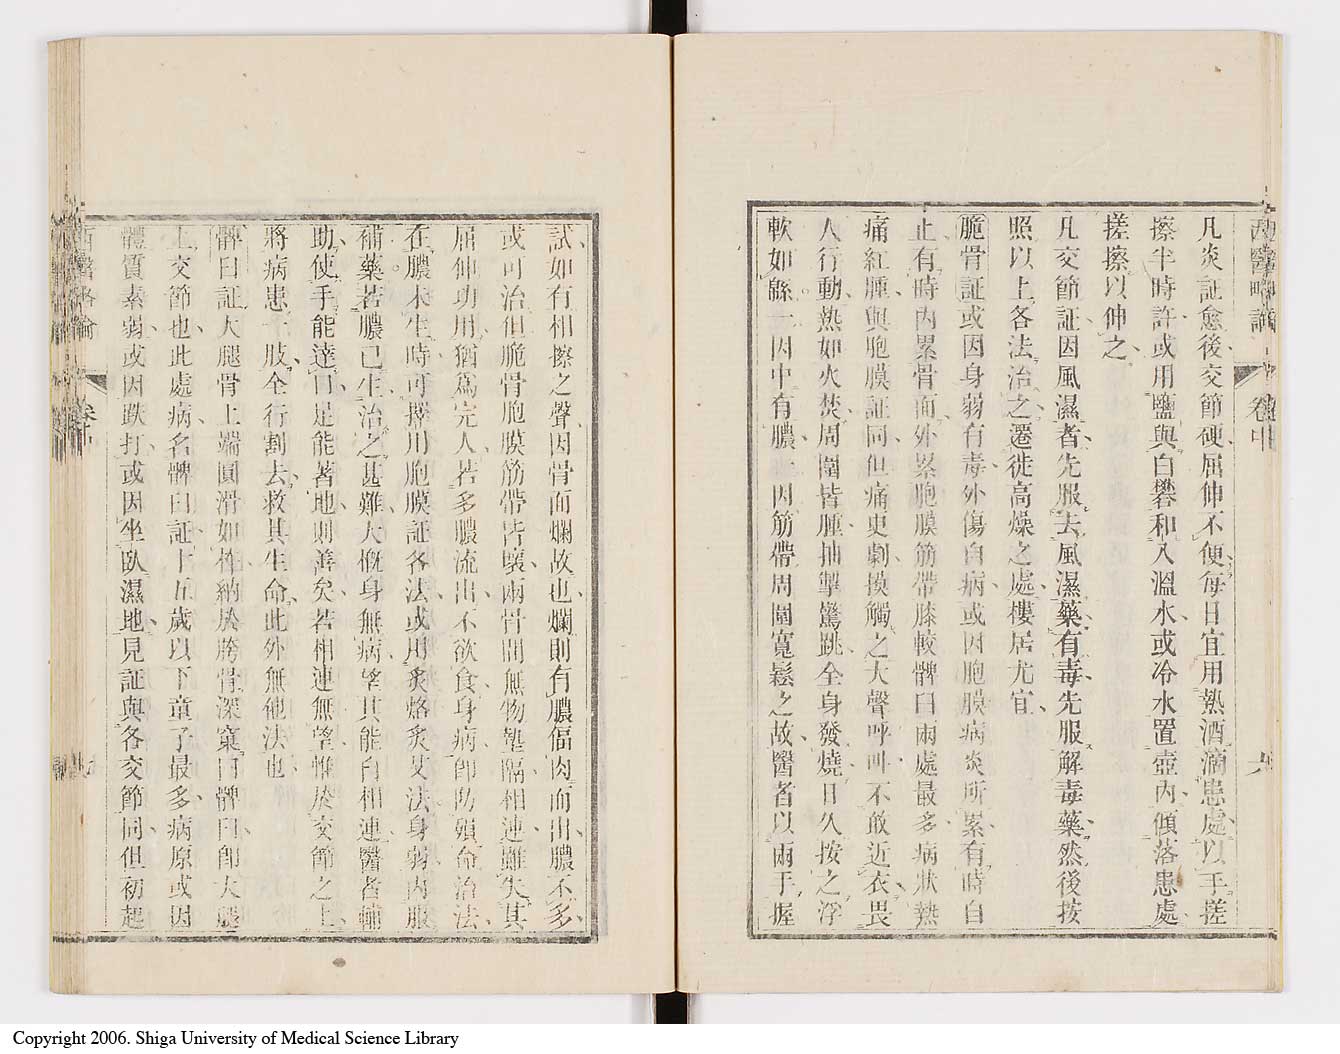 西醫略論 卷中 六
凡炎証愈後交節硬屈伸不便每日宜用熱酒滴患處以手搓
擦半時許或用鹽與白礬和入溫水或冷水置壺內傾落患處
搓擦以伸之
凡交節証因風濕者先服去風濕藥有毒先服解毒藥然後按
照以上各法治之遷徙高燥之處樓居尤宜
脆骨証或因身弱有毒外傷自病或因胞膜病炎所累有時自
止有時內累骨面外累胞膜筋帶膝較髀臼兩處最多病狀熱
痛紅腫與胞膜証同但痛更劇摸觸之大聲呼叫不敢近衣畏
人行動熱如火焚周圍皆腫抽掣驚跳全身發燒日久按之浮
軟如緜一因中有膿一因筋帶周圍寬鬆之故醫者以兩手握
試如有相擦之聲因骨面爛故也爛則有膿偪肉而出膿不多
或可治但脆骨胞膜筋帶皆壞兩骨間無物墊隔相連難失其
屈伸功用猶為完人若多膿流出不欲食身病卽防殞命治法
在膿未生時可擇用胞膜証各法或用炙烙炙艾法身弱內服
補藥若膿已生治之甚難大槪身無病望其能自相連醫者輔
助使手能達口足能著地則善矣若相連無望惟於交節之上
將病患一肢全行割去救其生命此外無他法也
髀臼証大腿骨上端圓滑如杵納於胯骨深窠曰髀臼卽大腿
上交節也此處病名髀臼証十五歲以下童子最多病原或因
體質素弱或因跌打或因坐臥濕地見証與各交節同但初起
西醫略論 卷中
Copyright 2006. Shiga University of Medical Science Library